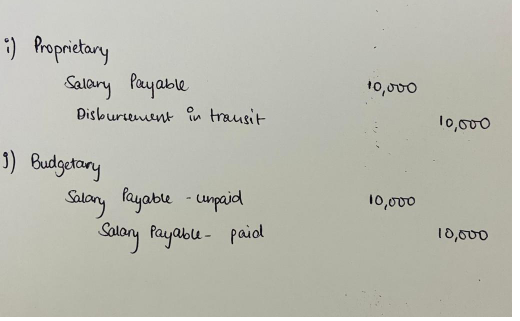 i) Proprietary
Salary Payable 10,000
Disbursement in transit 10,000
j) Budgetary
Salary Payable - unpaid 10,000
Salary Payable - paid 10,000